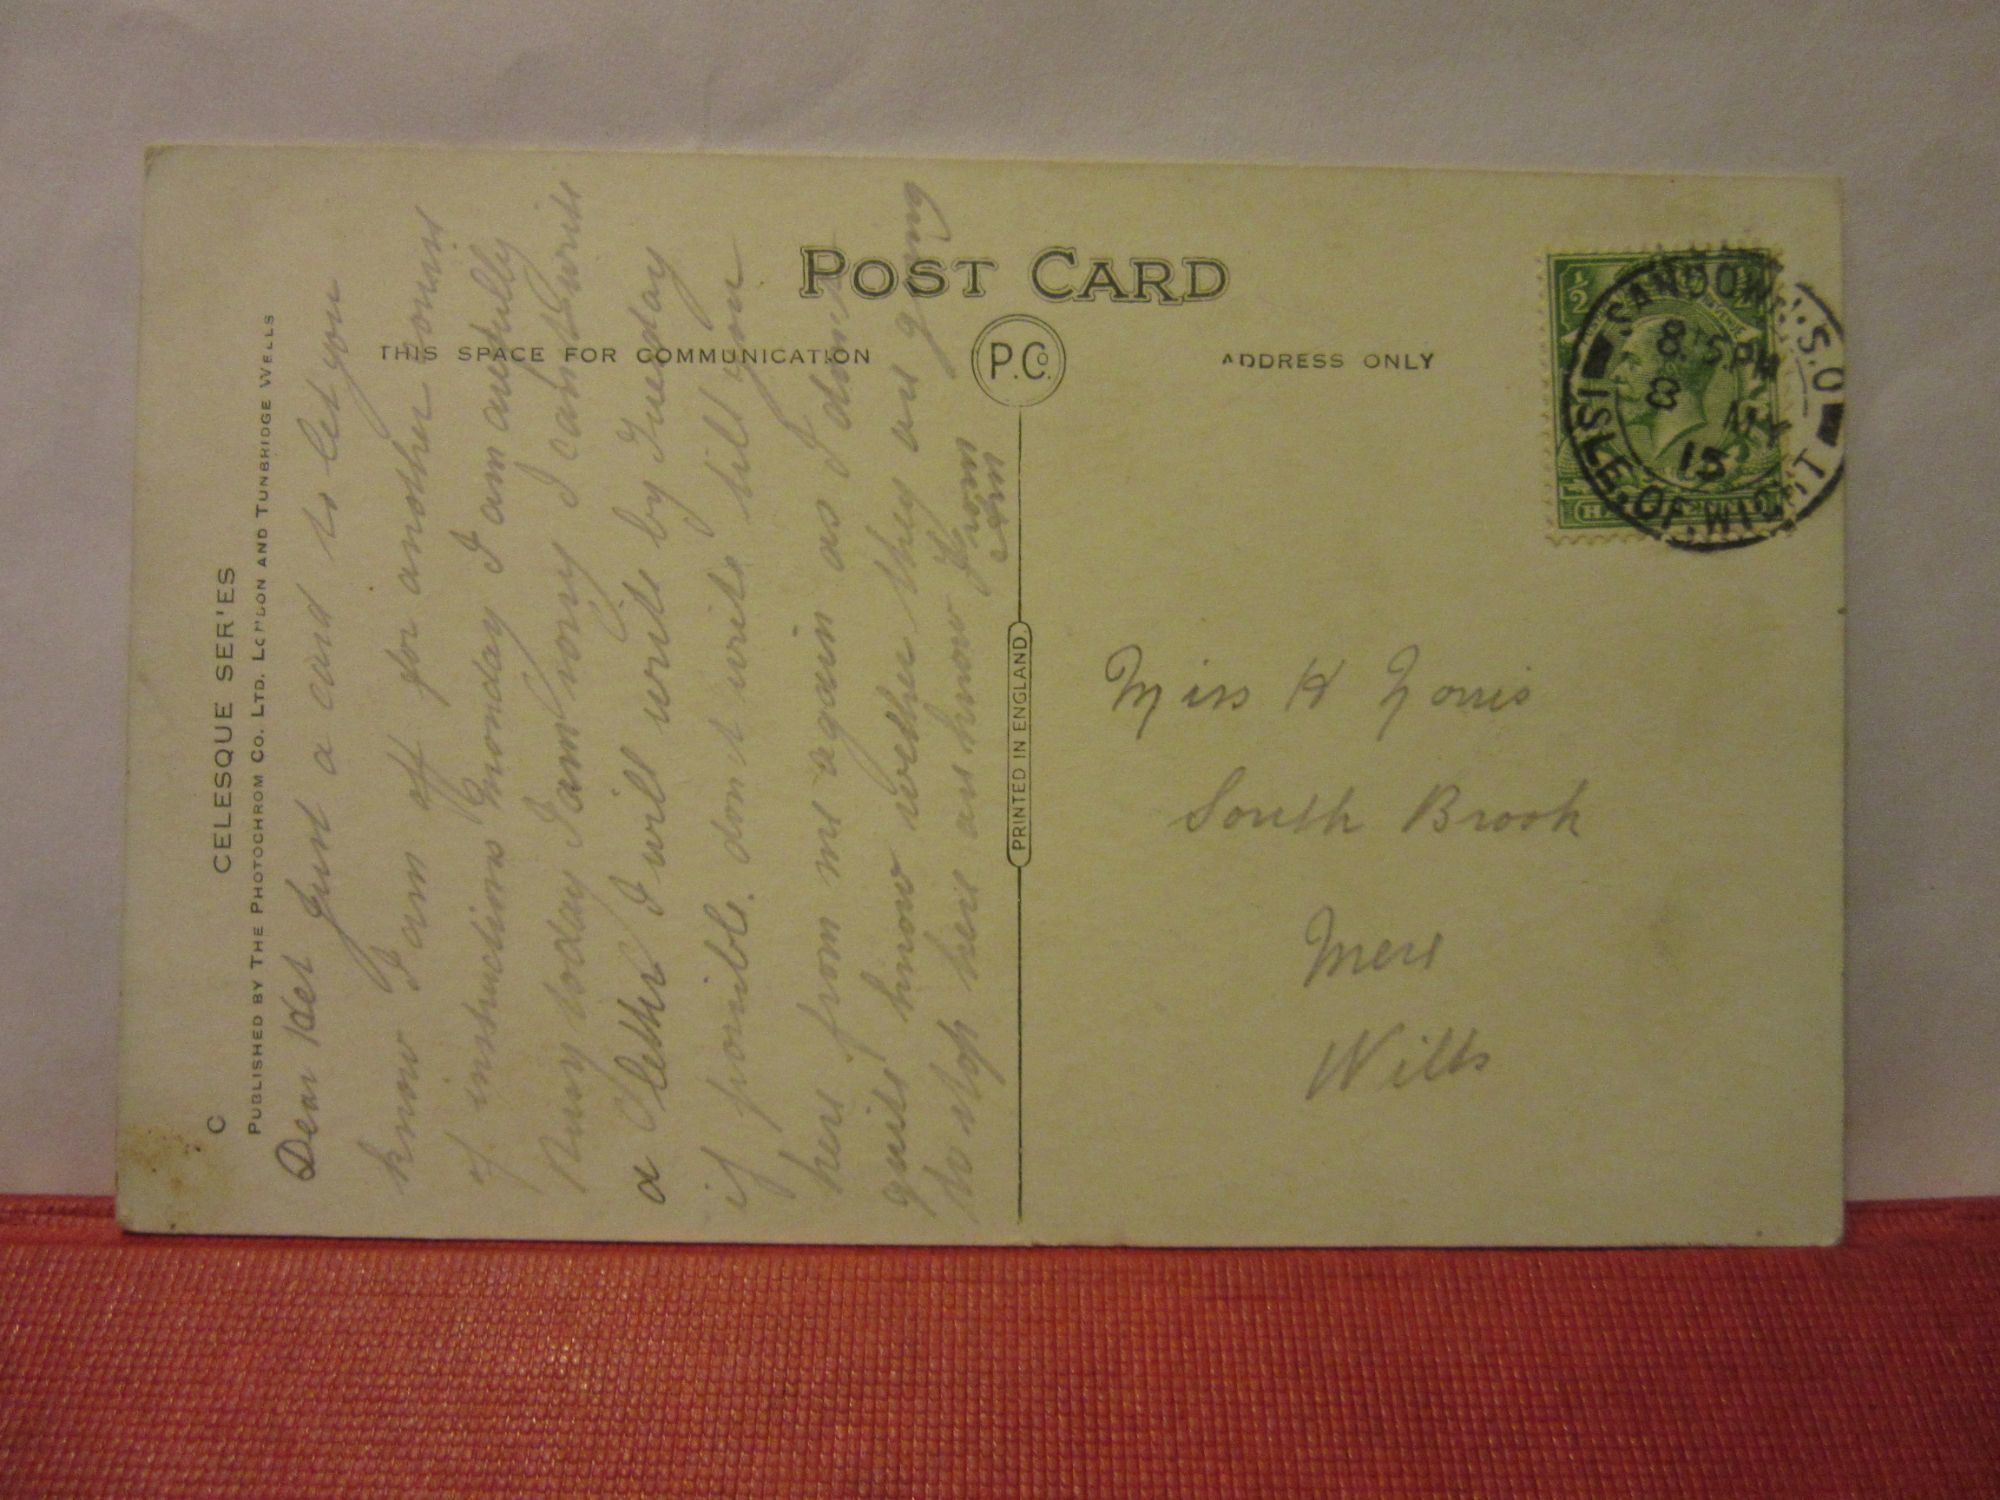 POST CARD
THIS SPACE FOR COMMUNICATION
P.Co.
ADDRESS ONLY
PRINTED IN ENGLAND
C CELESQUE SER'ES
PUBLISHED BY THE PHOTOCHROM CO. LTD. LONDON AND TUNBRIDGE WELLS
Dear Het Just a card to let you
know I am off for another course
of instructions Monday I am awfully
Busy today I am sorry I cant write
a letter I will write by Tuesday
if possible. dont write till you
here from me again as I dont
quite know wether they are going
to stop here an know from
½
SANDOWN S.O.
8.15 PM
8 MY
15
ISLE.OF.WIGHT
Miss H Norris
South Brook
Mere
Wilts